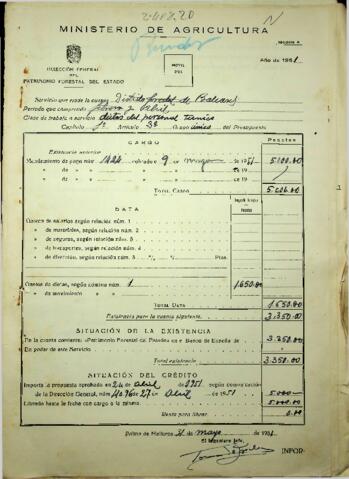 2.608.20
MINISTERIO DE AGRICULTURA
N
Modelo A
DIRECCIÓN GENERAL
DEL
PATRIMONIO FORESTAL DEL ESTADO
MOVIL
Año de 1951
Servicio que rinde la cuenta Distrito forestal de Baleares
Período que comprende Abril
Clase de trabajo o servicio dietas del personal técnico
Capítulo 1º Artículo Grupo único del Presupuesto
CARGO
Pesetas
Existencia anterior
Mandamiento de pago núm. 1424 cobrado el 9 de mayo de 1951 5.000.00
» » » de 19
» » » de 19
TOTAL CARGO 5.000.00
DATA
Cuenta de salarios según relación núm. 1
» de materiales, según relación núm. 2
» de seguros, según relación núm. 3
» de transportes, según relación núm. 4
» de diversos, según relación núm. 5 Ptas.
Cuenta de dietas, según nómina núm. 1 1.650.00
» de
TOTAL DATA 1.650.00
Existencia para la cuenta siguiente 3.350.00
SITUACIÓN DE LA EXISTENCIA
En la cuenta corriente «Patrimonio Forestal del Estado» en el Banco de España de 3.350.00
En poder de este Servicio
Total existencia 3.350.00
SITUACIÓN DEL CRÉDITO
Importa la propuesta aprobada en 24 de Abril de 1951 según comunicación
de la Dirección General, núm. 4096 de 27 de Abril de 1951 5.000
Librado hasta la fecha con cargo a la misma 5.000
Resta para librar 0.00
Palma de Mallorca 31 de mayo de 1951
El Ingeniero Jefe,
INFOR-